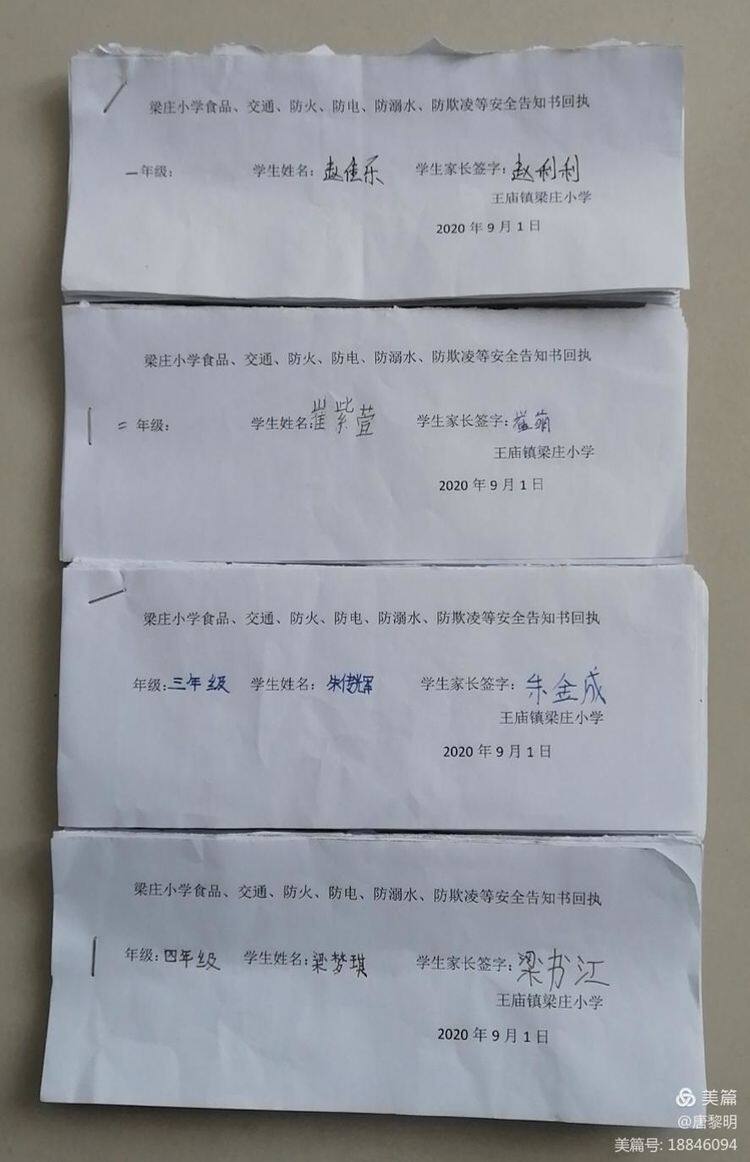 梁庄小学食品、交通、防火、防电、防溺水、防欺凌等安全告知书回执
一年级: 学生姓名:赵佳乐 学生家长签字:赵利利
王庙镇梁庄小学
2020年9月1日
梁庄小学食品、交通、防火、防电、防溺水、防欺凌等安全告知书回执
二年级: 学生姓名:崔紫萱 学生家长签字:崔
王庙镇梁庄小学
2020年9月1日
梁庄小学食品、交通、防火、防电、防溺水、防欺凌等安全告知书回执
年级:三年级 学生姓名:朱传辉 学生家长签字:朱金成
王庙镇梁庄小学
2020年9月1日
梁庄小学食品、交通、防火、防电、防溺水、防欺凌等安全告知书回执
年级:四年级 学生姓名:梁梦琪 学生家长签字:梁书江
王庙镇梁庄小学
2020年9月1日
美篇
@唐黎明
美篇号: 18846094